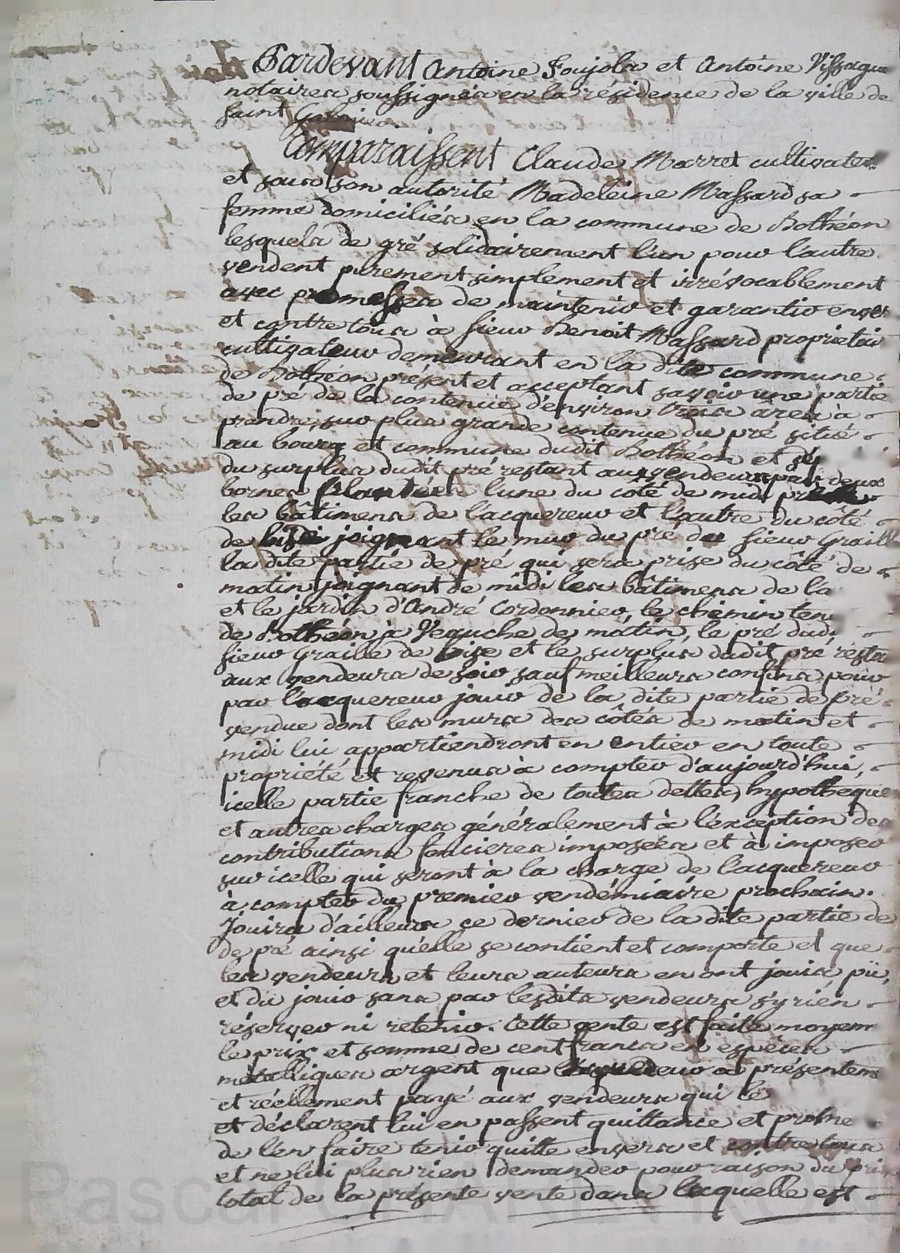 Pardevant Antoine Soujols et Antoine Vissague
notaires soussignés en la résidence de la ville de
saint Galmier
Comparaissent Claude Marret cultivateur
et sous son autorité Madeleine Massard sa
femme domiciliés en la commune de Bothéon
lesquels de gré solidairement l'un pour l'autre
vendent purement simplement et irrévocablement
avec promesses de maintenir et garantir envers
et contre tous à sieur Benoit Massard propriétair
cultivateur demeurant en la dite commune
de Bothéon présent et acceptant savoir une partie
de pré de la contenue d'environ trois ares à
prendre sur plus grande contenue du pré situé
au bourg et commune dudit Bothéon et
du surplus dudit pré restant aux vendeurs par deux
bornes plantées l'une du coté de midi
les bâtimens de l'acquereur et l'autre du côté
de bise joignant le mur du pré du sieur Graille
la dite partie de pré qui sera prise du côté de
matin joignant de midi les bâtimens de la
et le jardin d'André Cordonnier, le chemin ten
de Bothéon à Veauche de matin, le pré dudi
sieur Graille de bise et le surplus dudit pré resta
aux vendeurs de soir sauf meilleurs confins pour
par l'acquereur jouir de la dite partie de pré
vendue dont les murs des côtés de matin et
midi lui appartiendront en entier en toute
propriété et revenus à compter d'aujourd'hui,
icelle partie franche de toutes dettes, hypotheque
et autres charges généralement à l'exception des
contributions foncieres imposées et à imposer
sur icelle qui seront à la charge de l'acquereur
à compter du premier vendémiaire prochain.
Jouira d'ailleurs ce dernier de la dite partie de
de pré ainsi qu'elle se contient et comporte et que
les vendeurs et leurs auteurs en ont jouis pû,
et dû jouir sans par lesdits vendeurs s'y rien
réserver ni retenir. Cette vente est faite moyenn
le prix et somme de cent francs en espèces
métalliques argent que l'acquereur a présentem
et réellement payé aux vendeurs qui le
et déclarent lui en passent quittance et prome
de l'en faire tenir quitte envers et contre tous
et ne lui plus rien demander pour raison du prix
total de la présente vente dans laquelle est
Pascal CHAREYRON